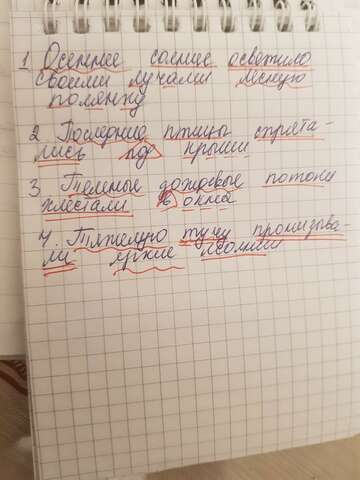 1. Осеннее солние осветило
своими лучами лесную
полянку
2. Последние птицы спрята-
лись под крыши
3. Темные дождевые потоки
хлестали в окна
4. Тяжелую тучу пронизыва-
ли яркие молнии